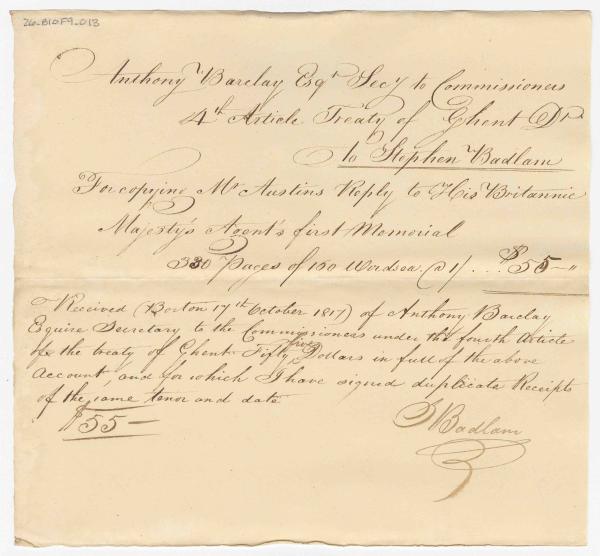 26-B10F9-013
Anthony Barclay Esqr Secy to Commissioners
4th Article Treaty of Ghent Dr
to Stephen Badlam
For copying Mr Austins Reply to His Britannic
Majesty's Agent's first Memorial
330 Pages of 160 Words ea. @ 1/ ... $55 - "
Received (Boston 17th October 1817) of Anthony Barclay
Equire Secretary to the Commissioners under the fourth Article
of the treaty of Ghent Fifty five Dollars in full of the above
account, and for which I have signed duplicate Receipts
of the same tenor and date
$55 -
S Badlam